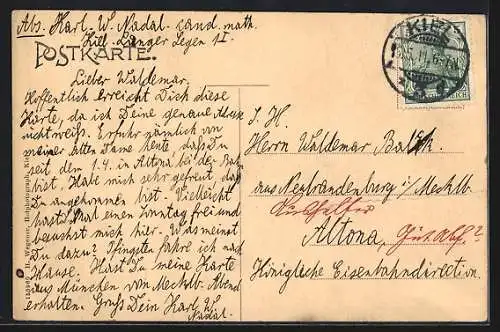 Abs. Karl. W. Nadal. cand. math.
Kiel. Langer Segen 11.
POSTKARTE.
Lieber Waldemar.
Hoffentlich erreicht Dich diese
Karte, da ich Deine genaue Adresse
nicht weiß. Erfuhr nämlich von
meiner alten Dame heute, daß Du
seit dem 1.4. in Altona bei der Bahn
bist. Habe mich sehr gefreut, daß
Du angekommen bist. Vielleicht
hast Du mal einen Sonntag frei und
besuchst mich hier. Was meinst
Du dazu? Pfingsten fahre ich nach
Hause. Hast Du meine Karte
aus München vom Mecklb. Abend
erhalten. Gruß Dein Karl W.
Nadal.
KIEL
S. H.
Herrn Waldemar
aus Neubrandenburg i/Mecklb.
Altona,
Königliche Eisenbahndirection.